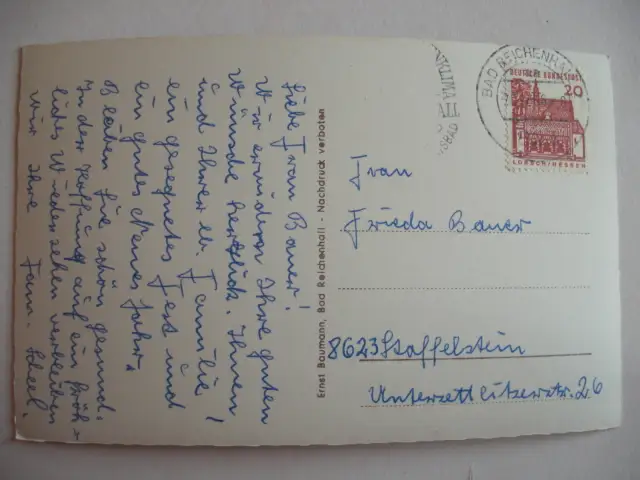 Liebe Frau Bauer!
Wir erwidern Ihre guten
Wünsche herzlich. Ihnen
und Ihrer w. Familie
ein gesegnetes Fest und
ein gutes Neues Jahr!
Bleiben Sie schön gesund.
In der Hoffnung auf ein fröh-
liches Wiedersehen verbleiben
wir Ihre Fam.
Ernst Baumann, Bad Reichenhall - Nachdruck verboten
BAD REICHENHALL
DEUTSCHE BUNDESPOST
20
LORSCH/HESSEN
Frau
Frieda Bauer
8623 Staffelstein
Unterzettlitzerstr. 26